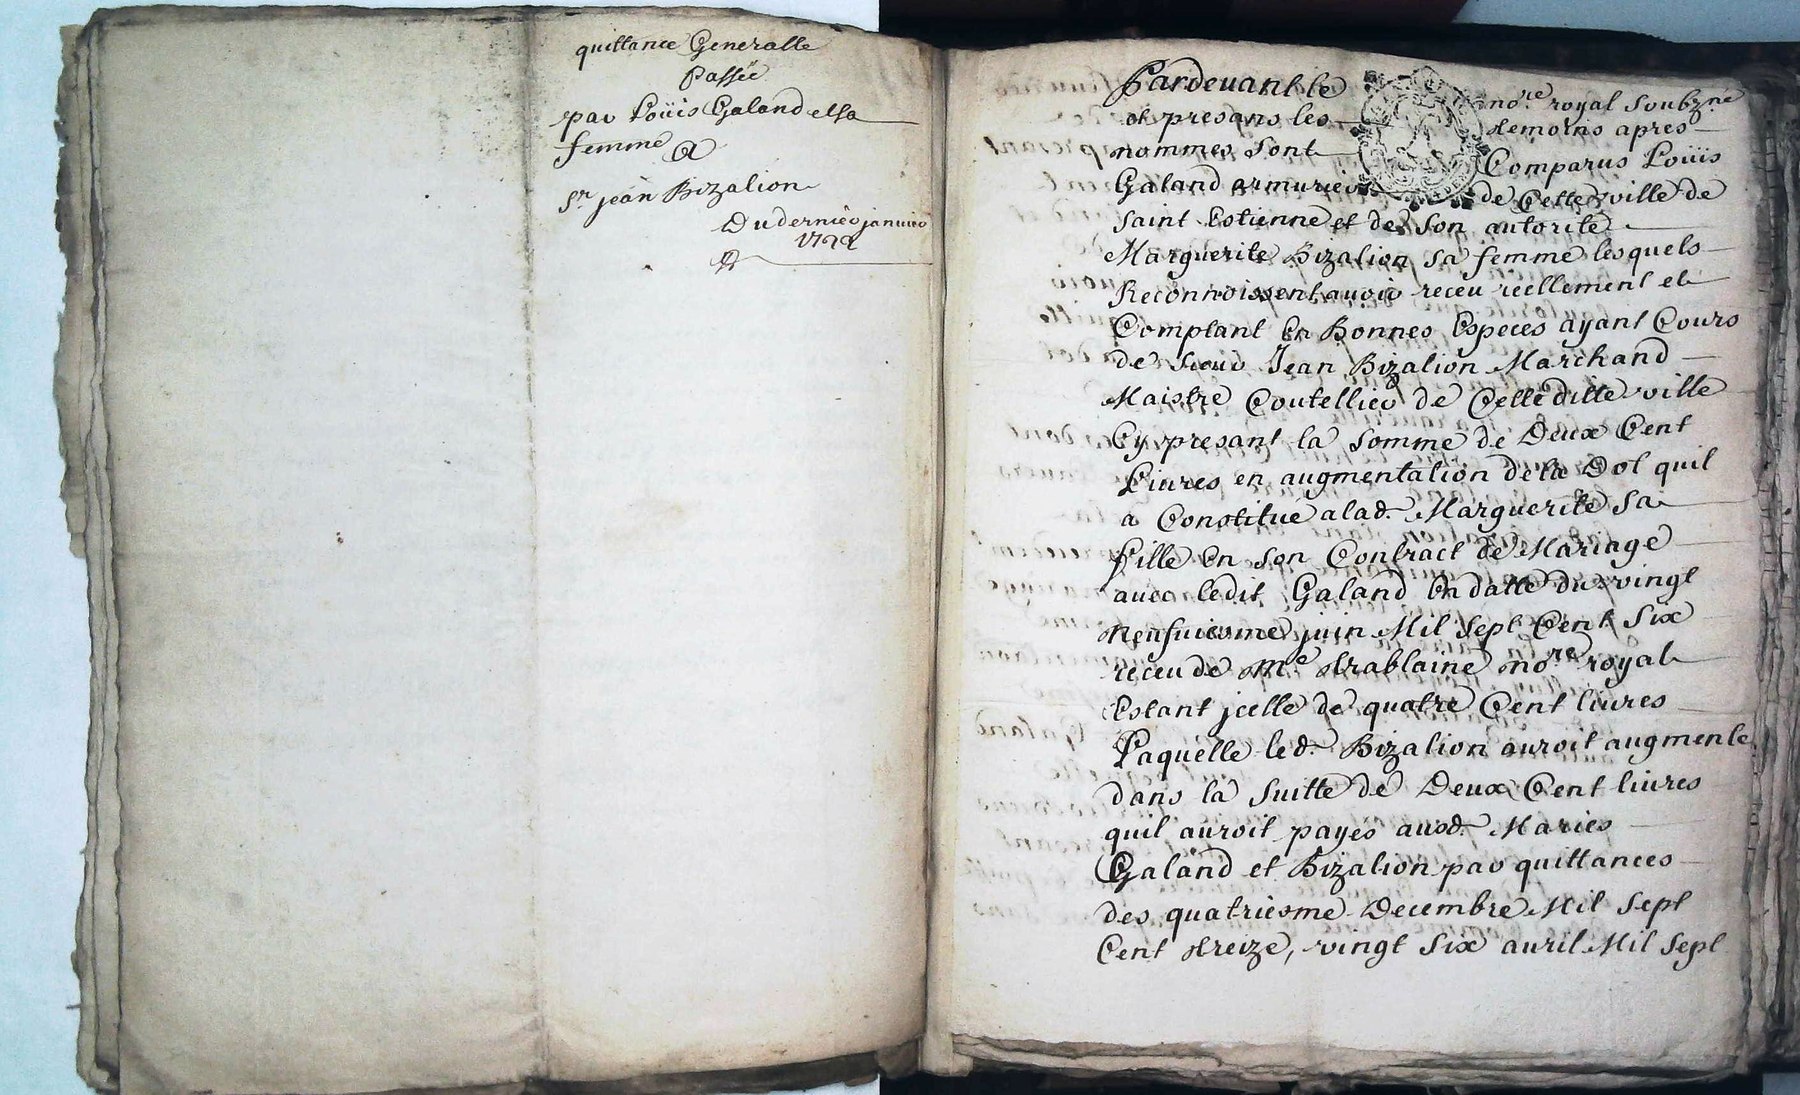 quittance Generalle
Passée
par Loüis Galand et sa
femme
A
Sr jean Bizalion
Du dernier janvier
Pardevant le no.re royal Soubz.né
et presans les temoins apres
nommes Sont Comparus Loüis
Galand armurier de Cette ville de
Saint Estienne et de Son autorité
Marguerite Bizalion Sa femme lesquels
Reconnoissent avoir receu reellement et
Comptant En Bonnes Especes ayant Cours
de Sieur Jean Bizalion Marchand
Maistre Coutellier de Cette ditte ville
Cy presant la Somme de Deux Cent
Livres en augmentation de la Dot quil
a Constitue a lad. Marguerite Sa
fille En son Contract de Mariage
avec ledit Galand En datte du vingt
neufuiesme juin Mil Sept Cent Six
receu de M.e trablaine no.re royal
Estant jcelle de quatre Cent livres
Laquelle led. Bizalion auroit augmente
dans la Suitte de Deux Cent livres
quil auroit payes ausd. Maries
Galand et Bizalion par quittances
des quatriesme Decembre Mil Sept
Cent treize, vingt Six avril Mil Sept